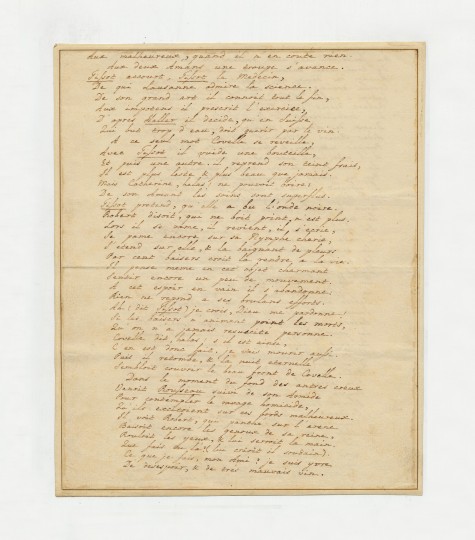 Aux malheureux, quand il n'en coute rien.
Aux deux Amans une troupe s'avance.
Tissot accourt, Tissot le Medecin,
De qui Lausanne admire la science.
De son grand art il connoit tout le fin,
Aux impotens il prescrit l'exercice,
D'après Haller il decide, qu'en Suisse
Qui but trop d'eau, doit guerir par le vin.
A ce seul mot Covelle se reveille,
Avec Tissot il vuide une bouteille,
Et puis une autre. il reprend son teint frais,
Il est plus leste & plus beau que jamais.
Mais Catherine, helas! ne pouvoit boire!
De son Amant les soins sont superflus.
Tissot pretend, qu'elle a bu l'onde noire.
Robert disoit, qui ne boit point, n'est plus.
Lors il se pâme, il revient, il s'ecrie,
Se pame encore, sur sa Nymphe cherie,
S'etend sur elle, & la baignant de pleurs
Par cent baisers croit la rendre à la vie.
Il pense même en cet objet charmant
Sentir encore un peu de mouvement.
A cet espoir en vain il s'abandonne.
Rien ne repond a ses brulans efforts.
Ah! (dit Tissot) je crois, Dieu me pardonne!
Si les baisers n'animent point les morts,
Qu'on n'a jamais resuscité personne.
Covelle dit, helas! s'il est vrai,
C'en est donc fait, je vais mourir aussi.
Puis il retombe, & la nuit eternelle
Sembloit couvrir le beau front de Covelle.
Dans le moment du fond des antres creux
Venoit Rousseau suivi de son Armide
Pour contempler le ravage homicide,
Qu'ils exciterent sur ces bords malheureux.
Il voit Robert, qui panché sur l'arene
Baisoit encore les genoux de sa reine,
Rouloit les yeux, & lui serroit la main.
Que fais tu là? lui cria-t-il soudain.
Ce que je fais, mon Ami? je suis yvre
De desespoir, & de tres mauvais vin.